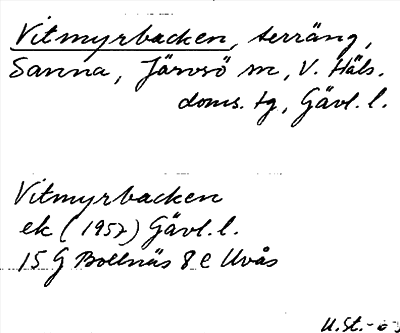 Vitmyrbacken, terräng,
Sanna, Järvsö sn, V. Häls.
doms. tg, Gävl. l.
Vitmyrbacken
ek (1957) Gävl. l.
15 G Bollnäs 8 e Uvås
U. St. -63